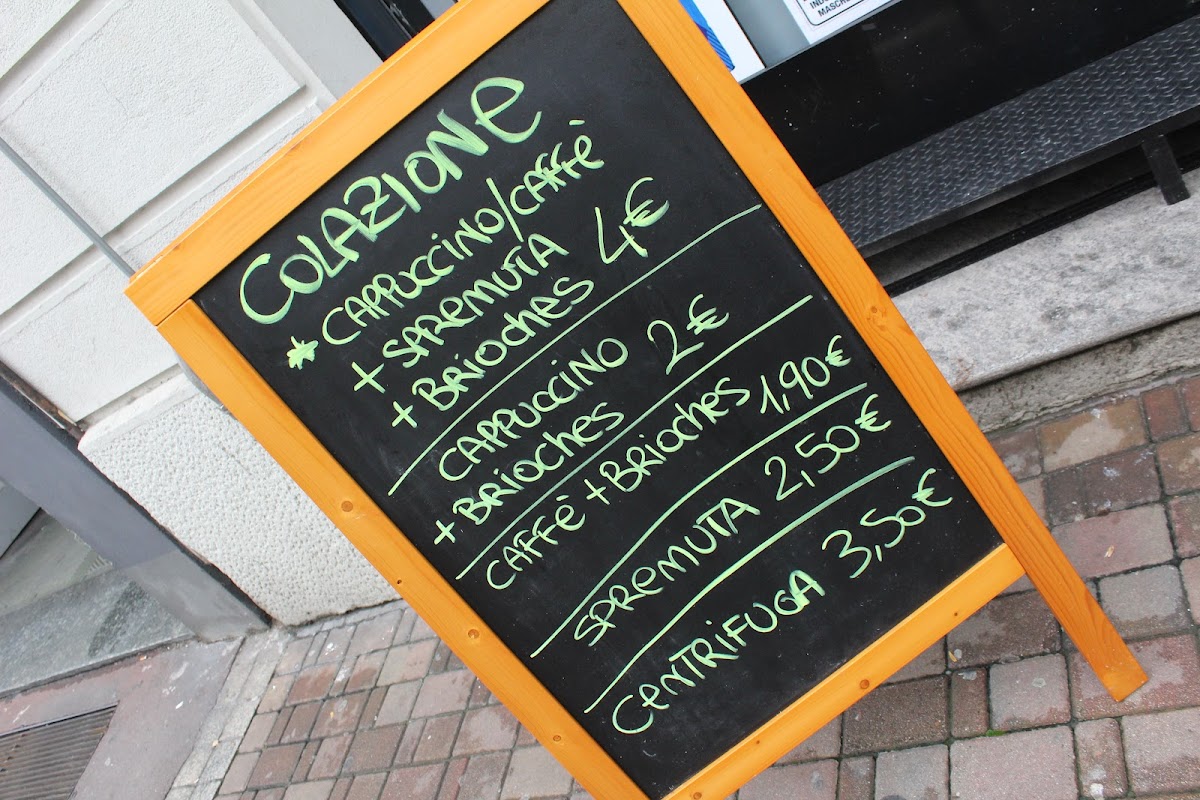 COLAZIONE
* CAPPUCCINO/CAFFÈ
+ SPREMUTA
+ BRIOCHES 4€
CAPPUCCINO
+ BRIOCHES 2€
CAFFÈ + BRIOCHES 1,90€
SPREMUTA 2,50€
CENTRIFUGA 3,50€